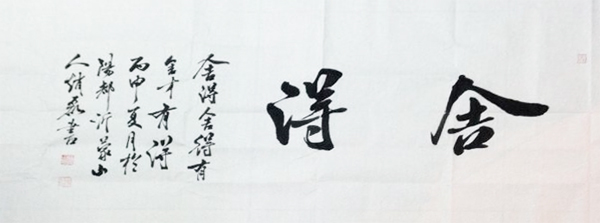 舍得
舍得舍得有
舍才有得
丙申夏月於
陽都沂蒙山
人書